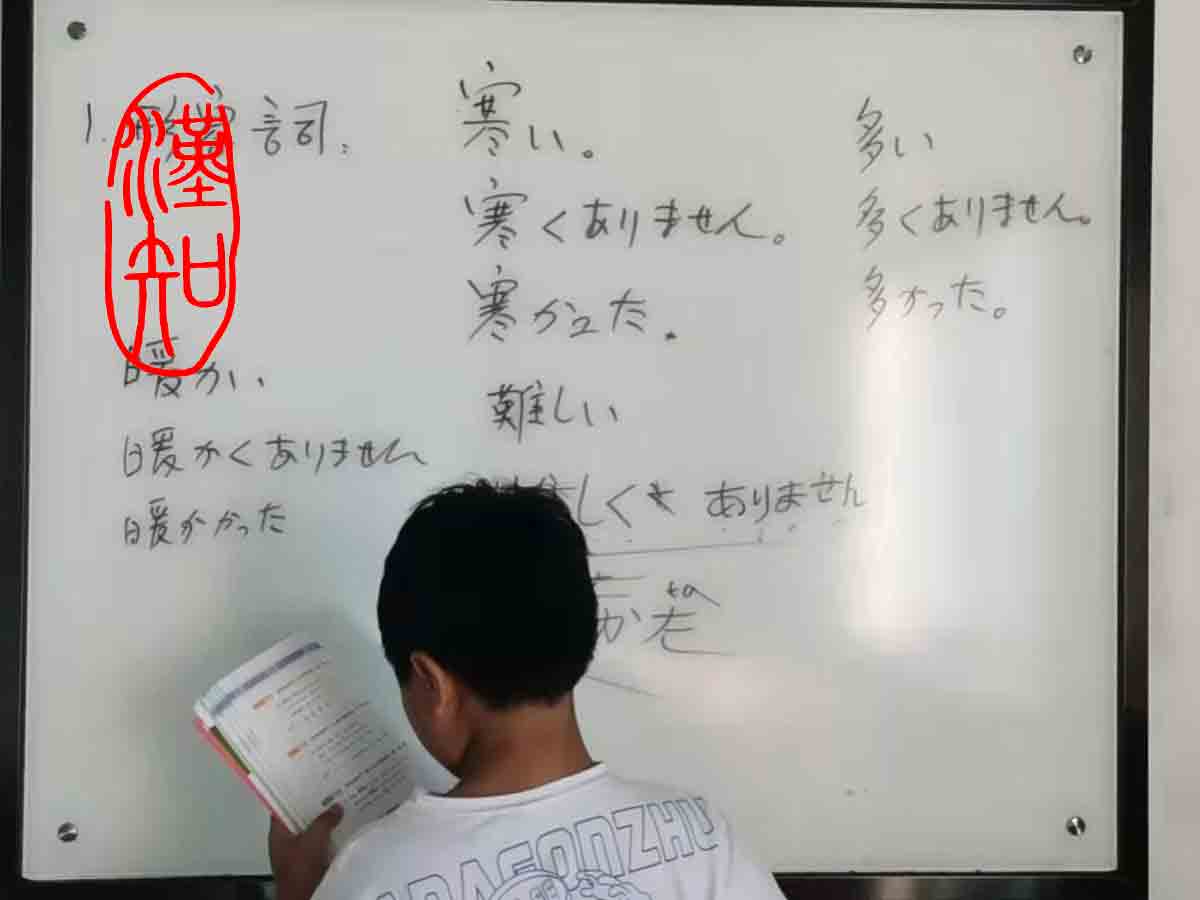 1. 形容詞:
暖かい
暖かくありません
暖かかった
寒い。
寒くありません。
寒かった.
難しい
しくも ありません
多い
多くありません。
多かった。
漢
知
DRAGONZHU